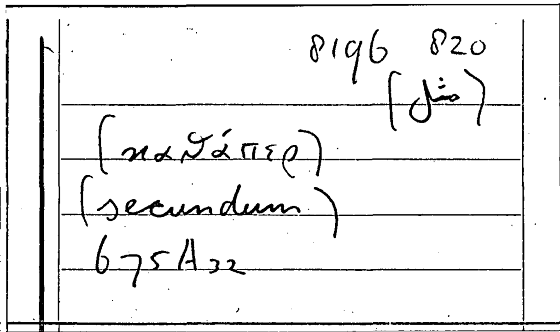 8196 820
(مثل)
(καθάπερ)
(secundum)
675A32